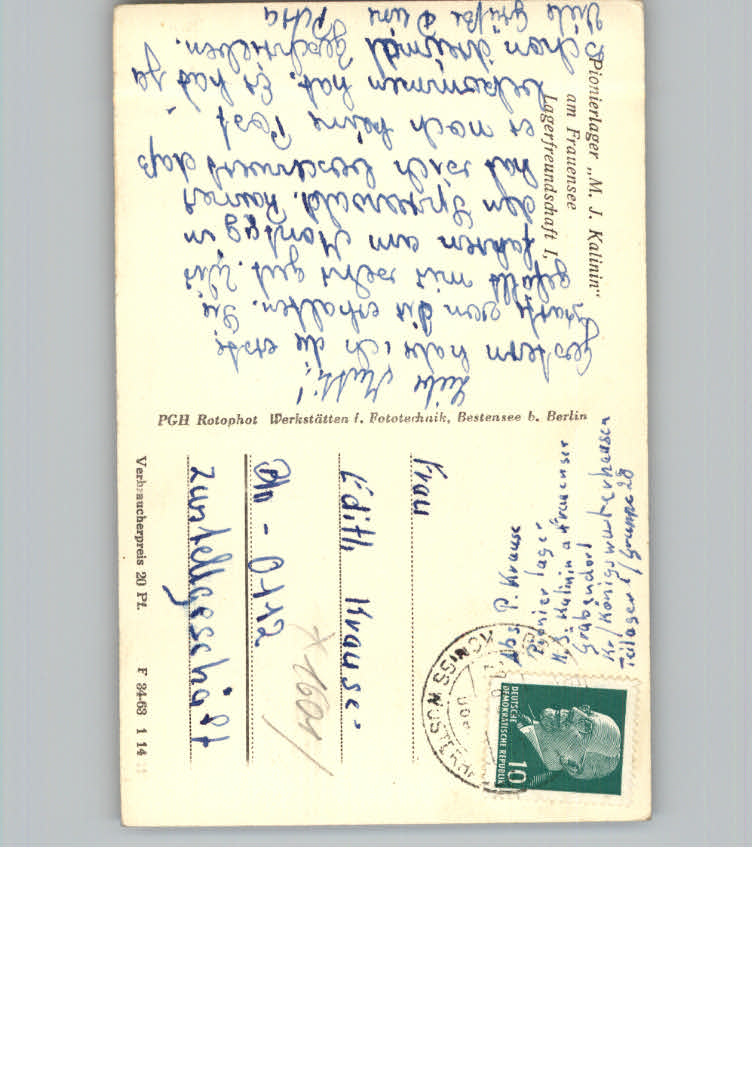 Pionierlager „M. J. Kalinin“
am Frauensee
Lagerfreundschaft I,
Liebe Mutti!
Gestern habe ich die erste
Karte von dir erhalten.
gefällt mir sehr gut. Wir
fahren am Montag in
den Spreewald. Rainer
hat sich beschwert daß
er noch keine Post
bekommen hat. Er hat ja
schon dreimal geschrieben.
Viele Grüße Deine
Petra
PGH Rotophot Werkstätten f. Fototechnik, Bestensee b. Berlin
Abs. P. Krause
Pionierlager
M. J. Kalinin a. Frauensee
Gräbendorf
Kr/Königswusterhausen
Teillager 1/Gruppe 28
DEUTSCHE
DEMOKRATISCHE REPUBLIK
10
KÖNIGS WUSTERH
Frau
Edith Krause
Bln - 0112
Zustellgeschäft
x 1601/
Verbraucherpreis 20 Pf. F 84-63 1 14